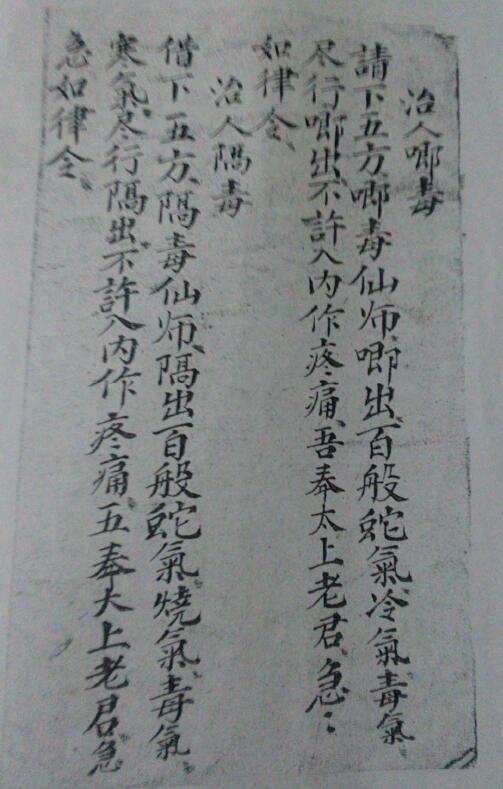 治人唧毒
請下五方唧毒仙师、唧出、百般蛇氣、冷氣、毒氣、
尽行唧出、不許入内作疼痛、吾奉太上老君、急〻
如律令、
治人隔毒
借下五方、隔毒仙师、隔出一百般蛇氣、烧氣、毒氣、
寒氣、尽行隔出、不許入内作疼痛、五奉大上老君、急
急如律令、